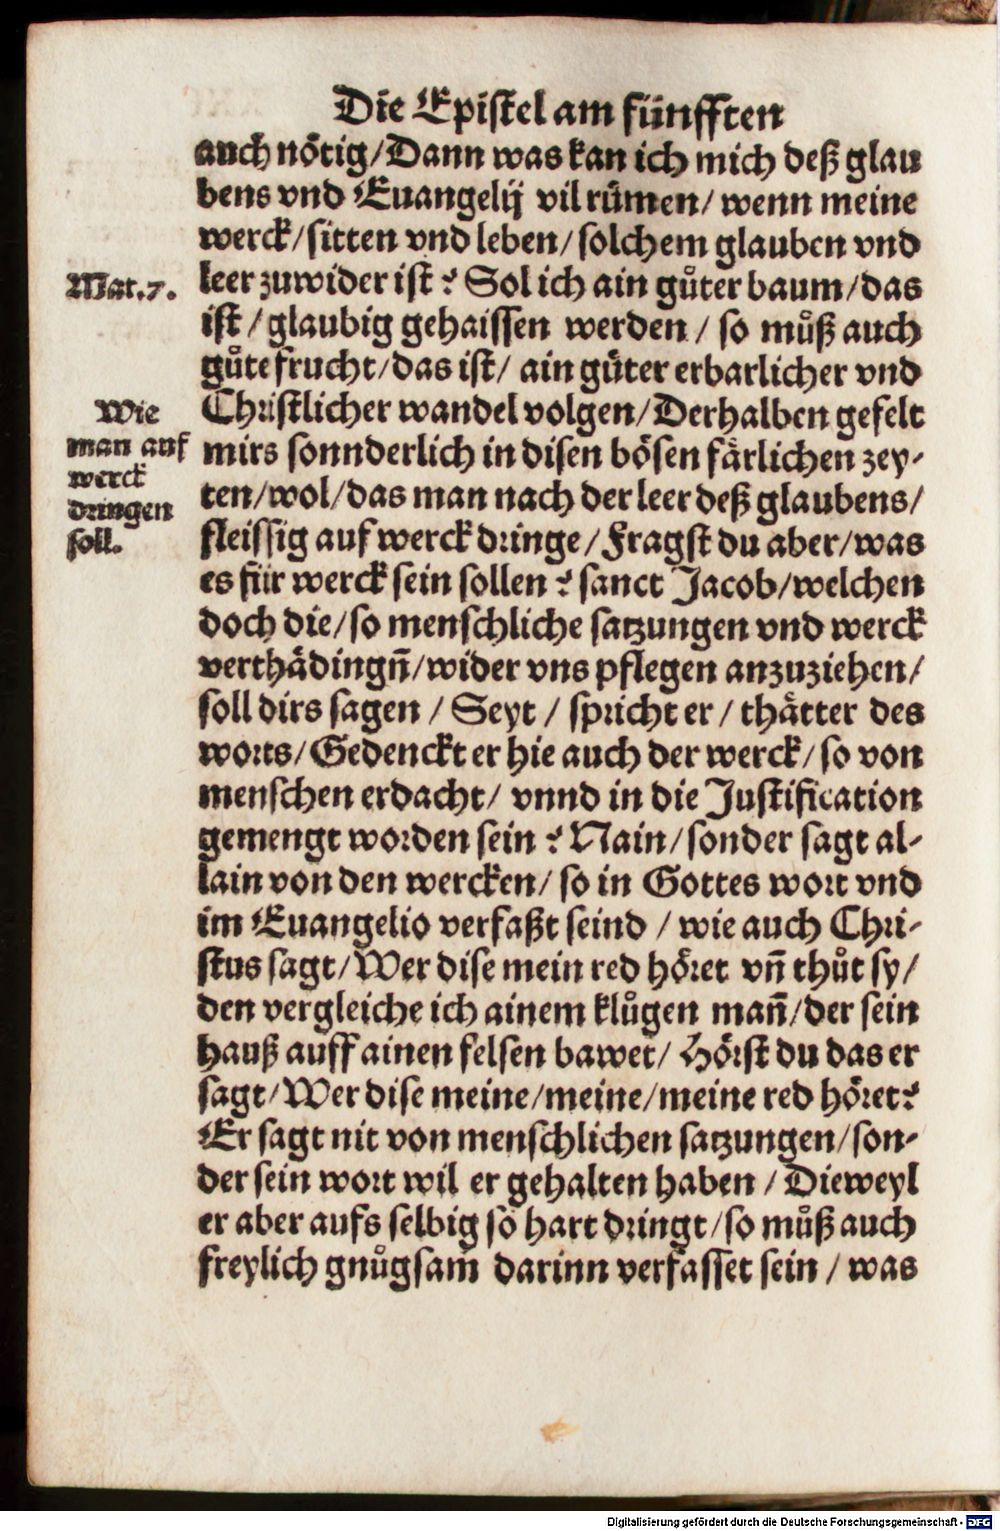 Die Epistel am fünfften
auch nötig/Dann was kan ich mich deß glau
bens vnd Euangelij vil rümen/ wenn meine
werck/sitten vnd leben/solchem glauben vnd
Mat.7.
leer zuwider ist? Sol ich ain gůter baum/das
ist/glaubig gehaissen werden/ so můß auch
gůte frucht/das ist/ ain gůter erbarlicher vnd
Wie
man auf
werck
dringen
soll.
Christlicher wandel volgen/Derhalben gefelt
mirs sonnderlich in disen bösen färlichen zey-
ten/wol/das man nach der leer deß glaubens/
fleissig auf werck dringe/Fragst du aber/was
es für werck sein sollen? sanct Jacob/welchen
doch die/so menschliche satzungen vnd werck
verthädingñ/wider vns pflegen anzuziehen/
soll dirs sagen / Seyt / spricht er / thätter des
worts/Gedenckt er hie auch der werck/so von
menschen erdacht/ vnnd in die Justification
gemengt worden sein? Nain/sonder sagt al-
lain von den wercken/ so in Gottes wort vnd
im Euangelio verfaßt seind / wie auch Chri-
stus sagt/Wer dise mein red höret vñ thůt sy/
den vergleiche ich ainem klůgen mañ/der sein
hauß auff ainen felsen bawet/ Hörst du das er
sagt/Wer dise meine/meine/meine red höret?
Er sagt nit von menschlichen satzungen/son-
der sein wort wil er gehalten haben / Dieweyl
er aber aufs selbig so hart dringt/so můß auch
freylich gnůgsam darinn verfasset sein / was
Digitalisierung gefördert durch die Deutsche Forschungsgemeinschaft - DFG